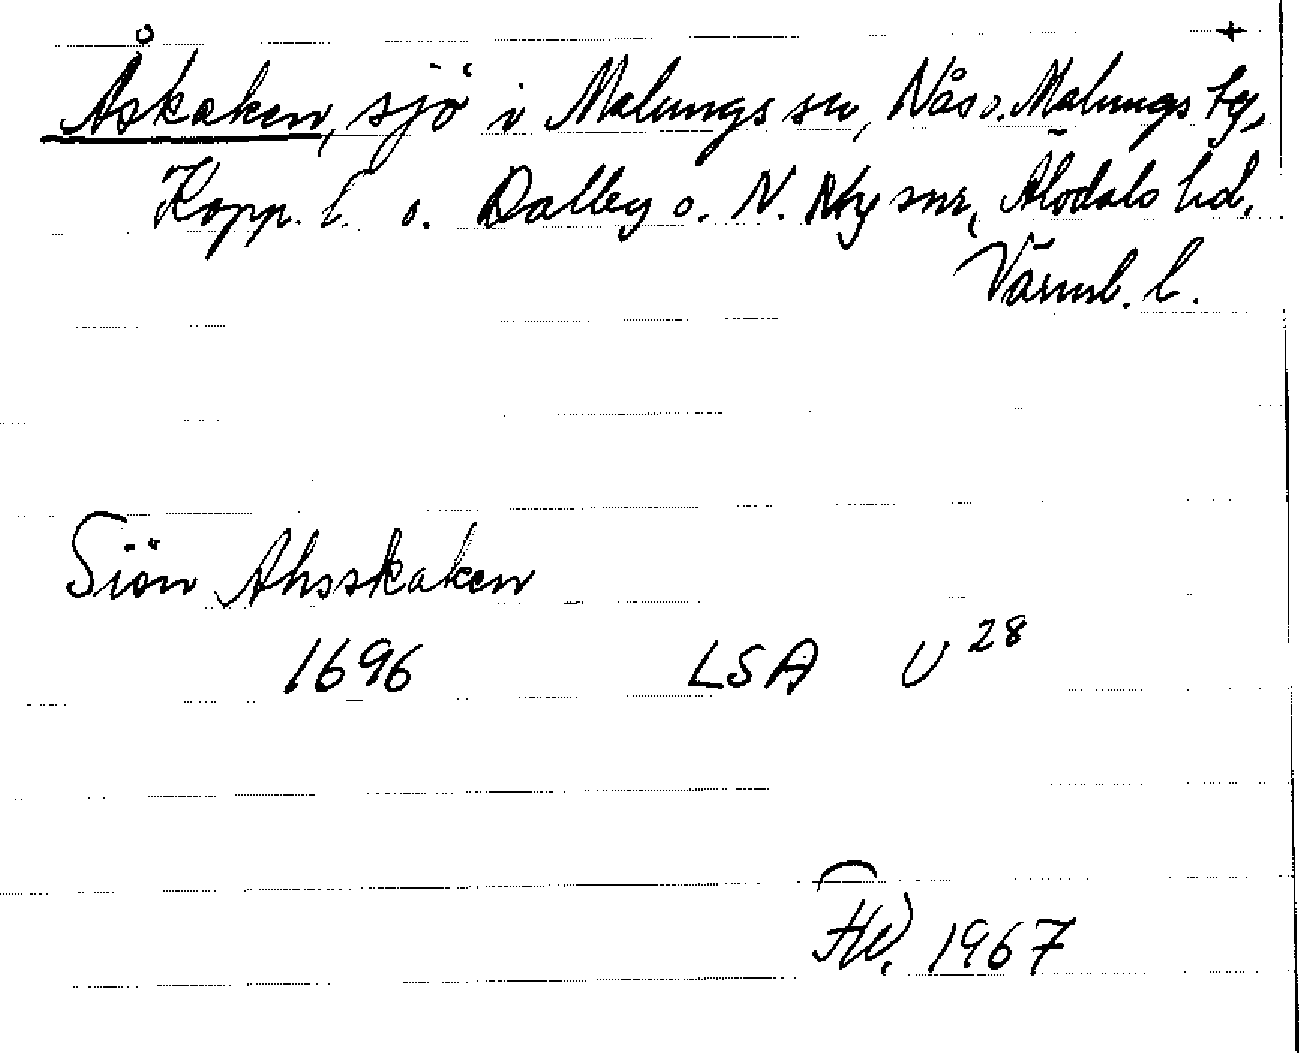 +
Åskaken, sjö i Malungs sn, Nås o. Malungs tg,
Kopp. l. o. Dalby o. N. Ny snr, Älvdals hd,
Värml. l.
Siön Ahsskaken
1696 LSA U 28
1967